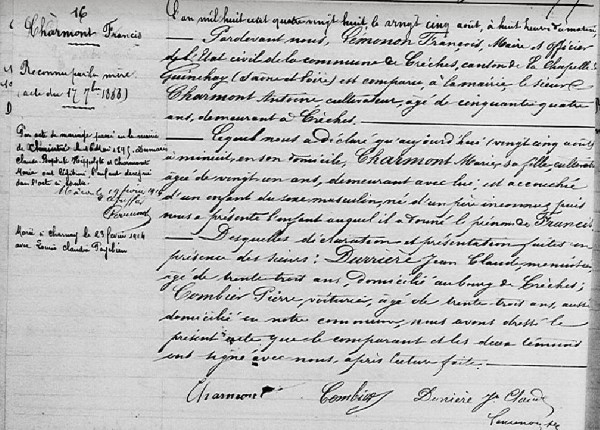 16
Charmont Francis
Reconnu par la mère
(acte du 17 7bre 1888)
Par acte de mariage passé en la mairie
Claude Baptiste Hippolyte et Charmont
Marie ont l'enfant
dans l'acte ci-contre
Marié à Charnay le 23 février 1914
avec Louise Claudine
L'an mil huit cent quatre vingt huit le vingt cinq août, à huit heures du matin
Pardevant nous, Lémonon François, Maire et officier
de l'Etat civil de la commune de Crèches, canton de La Chapelle de
Guinchay (Saône et Loire) est comparu, à la mairie le sieur
Charmont Antoine cultivateur, âgé de cinquante quatre
ans, demeurant à Crèches.
Lequel nous a déclaré qu'aujourd'hui vingt cinq août
à minuit, en son domicile, Charmont Marie, sa fille, cultivatrice
âgée de vingt un ans, demeurant avec lui, est accouchée
d'un enfant du sexe masculin, né d'un père inconnu, puis
nous a présenté l'enfant auquel il a donné le prénom de Francis
Desquelles déclaration et présentation faites en
présence des sieurs: Durrière Jean Claude, menuisier,
âgé de trente trois ans, domicilié au bourg de Crèches;
Combier Pierre, voiturier, âgé de trente trois ans, aussi
domicilié en notre commune, nous avons dressé le
présent acte que le comparant et les deux témoins
ont signé avec nous, après lecture faite.
Charmont Combier Durrière Jn Claude